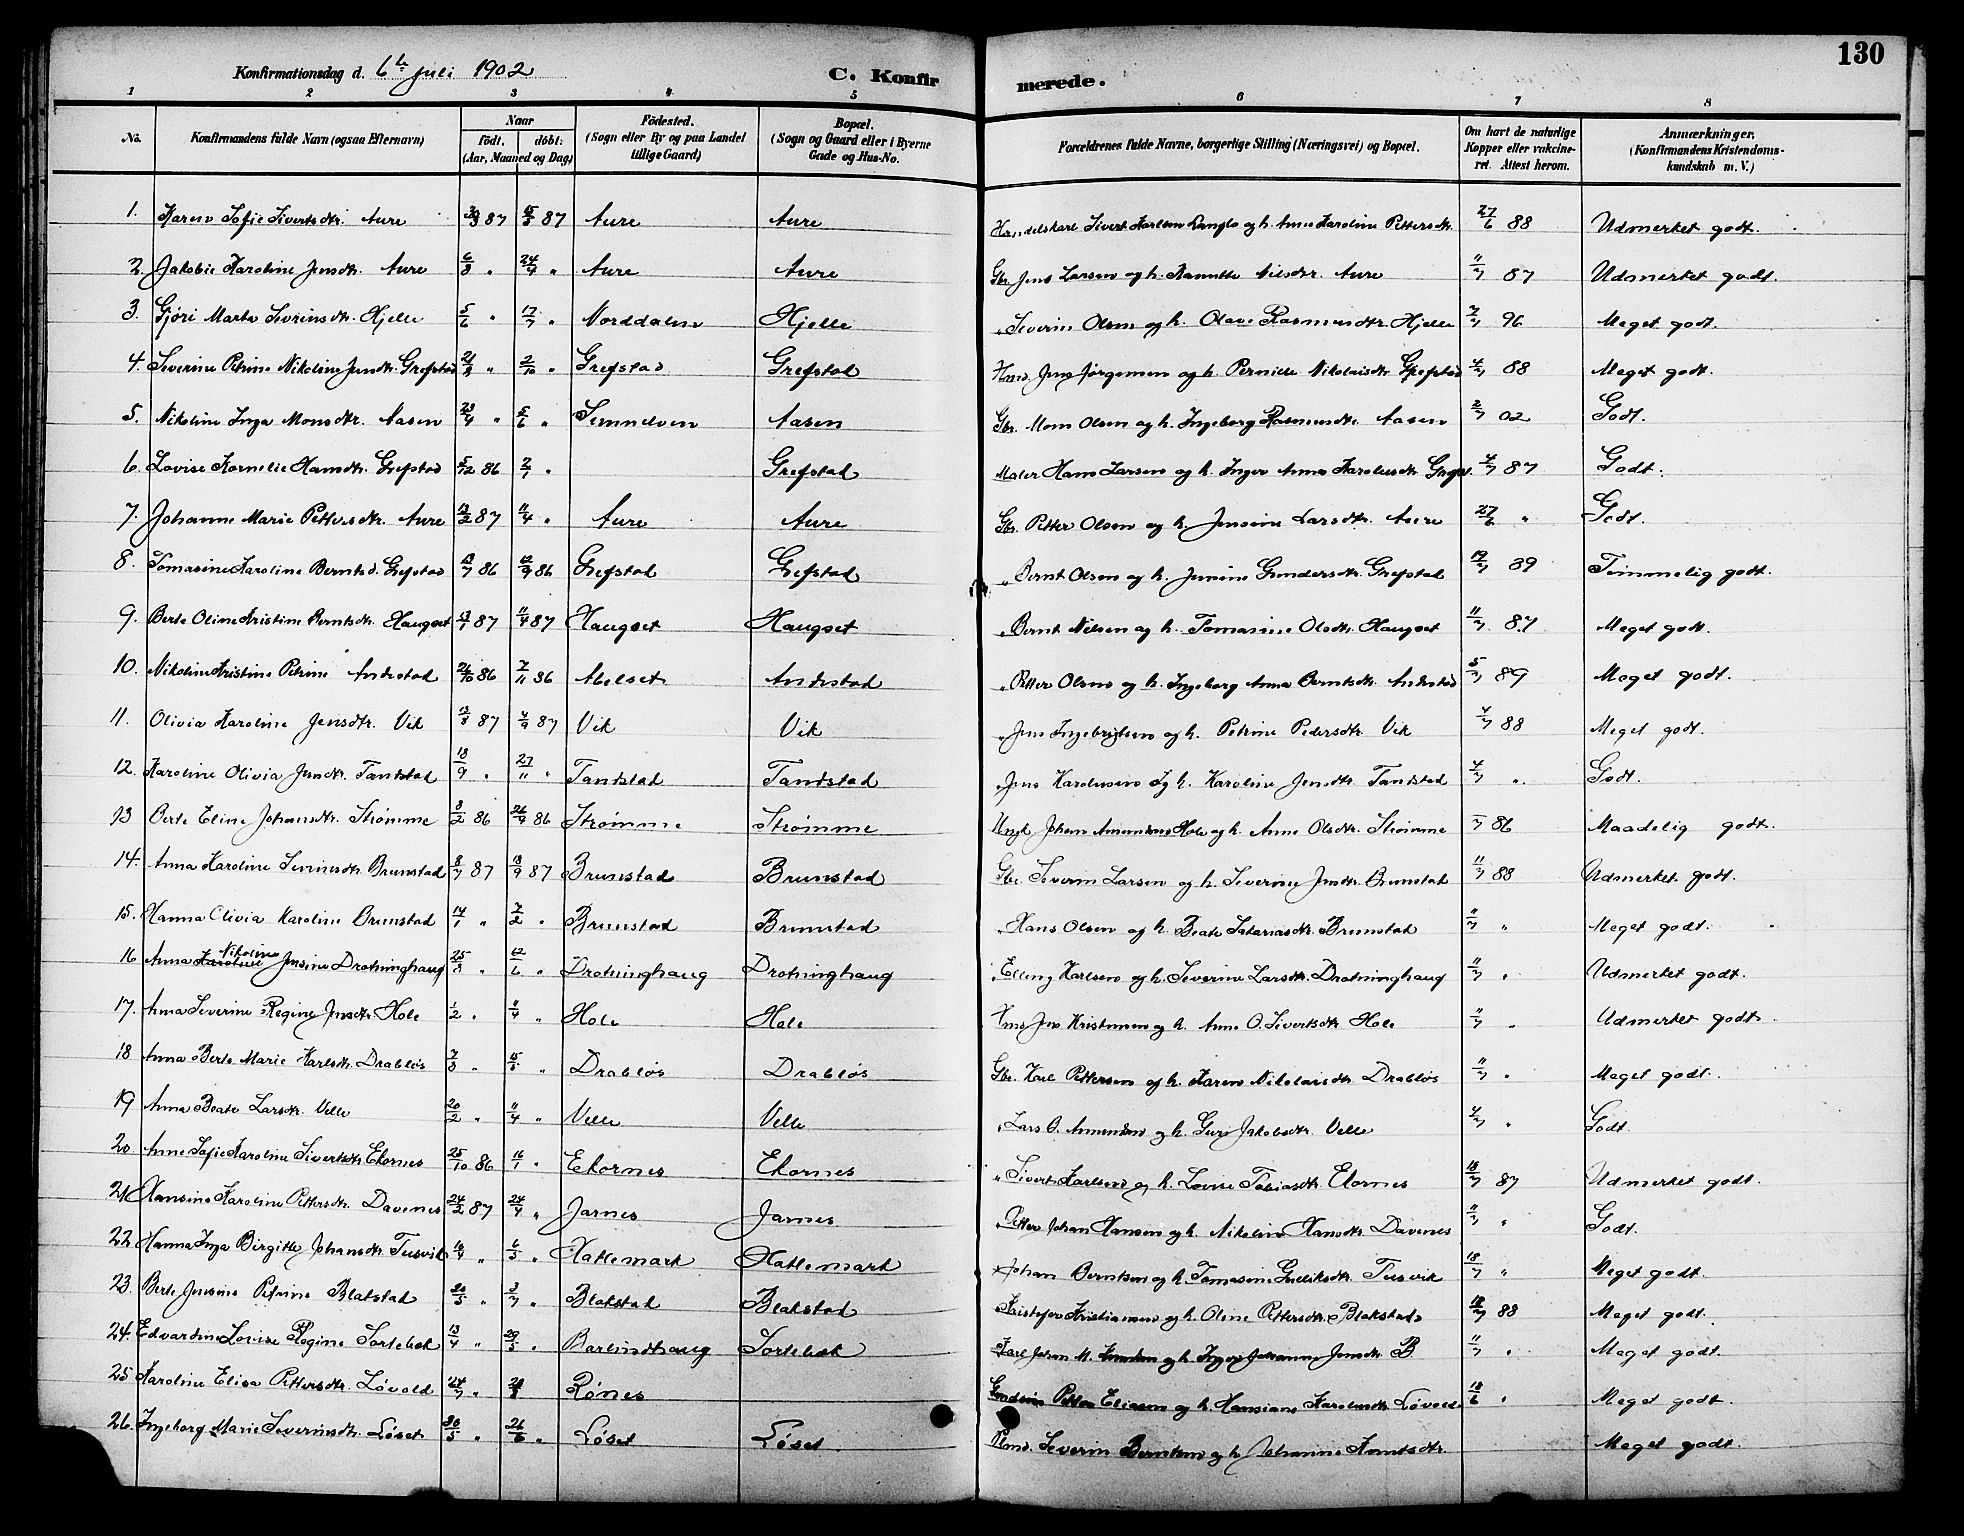 130
Konfirmationsdag d. 6te Juli 1902 C. Konfirmerede.
1 2 3 4 5 6 7 8
No. Konfirmandens fulde Navn (ogsaa Efternavn) Naar født. døbt: (Aar, Maaned og Dag) Fødested. (Sogn eller By og paa Landet tillige Gaard) Bopæl. (Sogn og Gaard eller i Byerne Gade og Hus-No. Forældrenes fulde Navne, borgerlige Stilling (Næringsvei) og Bopæl. Om havt de naturlige Kopper eller vakcineret. Attest herom. Anmærkninger, (Konfirmandens Kristendomskundskab m. V.)
1. Karen Sofie Sivertsdtr. Aure 87 15/5 87 Aure Aure Handelskarl Sivert Karlsen Langlo og h. Anne Karoline Pettersdtr. 27/6 88 Udmerket godt.
2. Jakobie Karoline Jensdtr. Aure 6/3 " 24/4 " Aure Aure Gbr. Jens Larsen og h. Nilsdtr. Aure 11/7 87 Udmerket godt.
3. Gjøri Marta Sevrinsdtr. Hjelle 5/6 " 17/7 " Norddalen Hjelle " Severin Olsen og h. Olave Rasmusdtr. Hjelle 2/7 96 Meget godt.
4. Severine Petrine Nikoline Jensdtr. Grefstad " 2/10 " Grefstad Grefstad Hmd. Jens Jørgensen og h. Pernille Nikolaisdtr. Grefstad 4/7 88 Meget godt.
5. Nikoline Inga Monsdtr. Aasen 23/4 " 5/6 " Aasen Gbr. Mons Olsen og h. Ingeborg Rasmusdtr. Aasen 2/7 02 Godt.
6. Lovise Kornelie Hansdtr. Grefstad 5/12 86 2/1 " Grefstad Maler Hans Larsen og h. Inger Anna Karolusdtr. Grefst. 4/7 87 Godt.
7. Johanne Marie Pettersdtr. Aure 13/2 87 11/4 " Aure Aure Gbr. Petter Olsen og h. Jensine Larsdtr. Aure 27/6 " Godt.
8. Tomasine Karoline Berntsd. Grefstad 13/7 86 12/9 86 Grefstad Grefstad " Bernt Olsen og h. Jensine Gundersdtr. Grefstad 89 Temmelig godt.
9. Berte Oline Kristine Berntsdtr. Haugset 13/1 87 11/4 87 Haugset Haugset " Bernt Nilsen og h. Tomasine Olsdtr. Haugset 11/7 87 Meget godt.
10. Nikoline Kristine Petrine Andestad 26/10 86 7/11 86 Abelset Andestad " Petter Olsen og h. Ingeborg Anna Berntsdtr. Andestad 5/7 89 Meget godt.
11. Olivia Karoline Jensdtr. Vik 13/8 87 4/9 87 Vik Vik " Jens Ingebrigtsen og h. Petrine Pedersdtr. Vik 4/7 88 Meget godt.
12. Karoline Olivia Jensdtr. Tandstad 18/9 " 27/11 " Tandstad Tandstad " Jens Karolusen og h. Karoline Jensdtr. Tandstad 4/7 " Godt.
13 Berte Eline Johansdtr. Strømme 8/2 86 26/4 86 Strømme Strømme Ungk. Johan Hole og h. Anne Olsdtr. Strømme 86 Maadelig godt.
14. Anna Karoline Sevrinsdtr. Brunstad 8/7 87 18/9 87 Brunstad Brunstad Gbr. Severin Larsen og h. Severine Jensdtr. Brunstad 11/7 88 Udmerket godt.
15. Hanna Olivia Karoline Brunstad 14/1 " 7/2 " Brunstad Brunstad " Hans Olsen og h. Beate Sakariasdtr. Brunstad 11/7 " Meget godt.
16 Anna Nikoline Jensine Drotninghaug 25/3 " 12/6 " Drotninghaug Drotninghaug " Elling Karlsen og h. Severine Larsdtr. Drotninghaug 11/7 " Udmerket godt.
17. Anna Severine Regine Jensdtr. Hole 1/2 " 11/4 " Hole Hole Hmd. Jens Kristensen og h. Anne O. Sivertsdtr. Hole 11/7 " Udmerket godt.
18 Anna Berte Marie Karlsdtr. Drabløs 7/3 " 15/5 " Drabløs Drabløs Gbr. Karl Pettersen og h. Karen Nikolaisdtr. Drabløs 11/7 " Meget godt.
19 Anna Beate Larsdtr. Velle 20/2 " 11/4 " Velle Velle " Lars O. Amundsen og h. Guri Jakobsdtr. Velle 4/7 " Godt.
20 Anne Sofie Karoline Sivertsdtr. Ekornes 25/10 86 16/1 " Ekornes Ekornes " Sivert Karlsen og h. Lovise Tobiasdtr. Ekornes 18/7 87 Udmerket godt.
21 Hansine Karoline Pettersdtr. Davenes 24/2 87 24/4 " Jarnes Jarnes " Petter Johan Hansen og h. Nikoline Hansdtr. Davenes 11/7 " Godt.
22 Hanna Inga Birgitte Johansdtr. Tusvik 10/4 " 6/5 " Hatlemark Hatlemark " Johan Berntsen og h. Tomasine Tusvik 18/7 " Meget godt.
23. Berte Jensine Petrine Blakstad 20/5 " 3/7 " Blakstad Blakstad " Kristofer Kristiansen og h. Oline Pettersdtr. Blakstad 18/7 88 Meget godt.
24. Edvardine Lovise Regine Sortebek 13/4 " 29/5 " Barlindhaug Sortebek " Karl Johan M. og h. Inger Johanne Jensdtr. B 11/7 " Meget godt.
25 Karoline Elisa Pettersdtr. Løvold 24/7 " Rønes Petter Eliasen og h. Hansiane Karolusdtr. Løvold 18/6 " Meget godt.
26. Ingeborg Marie Severinsdtr. Løset 30/5 " 26/6 " Løset Løset Hmd. Severin Berntsen og h. Johanne Knutsdtr. Meget godt.